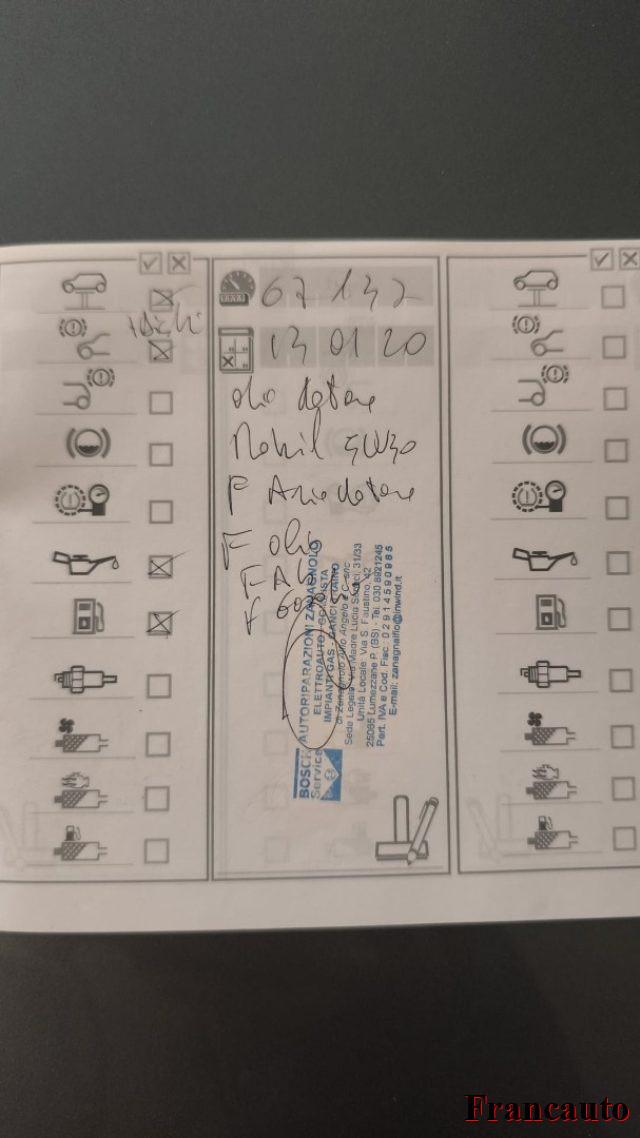 67 137
13 01 20
olio motore
Mobil 5W30
F Aria motore
F olio
F Ab
BOSCH
Service
AUTORIPARAZIONI ZANAGNOLO
ELETTRAUTO - GOMMISTA
IMPIANTI GAS - GANCI TRAINO
di Zanagnolo Angelo e C. snc
Sede Legale: Via Madre Lucia 31/33
Unità Locale: Via S. Faustino, 42
25065 Lumezzane P. (BS) - Tel. 030 8921245
Part. IVA e Cod. Fisc.: 02914590985
E-mail: zanagnolfio@inwind.it
Francauto